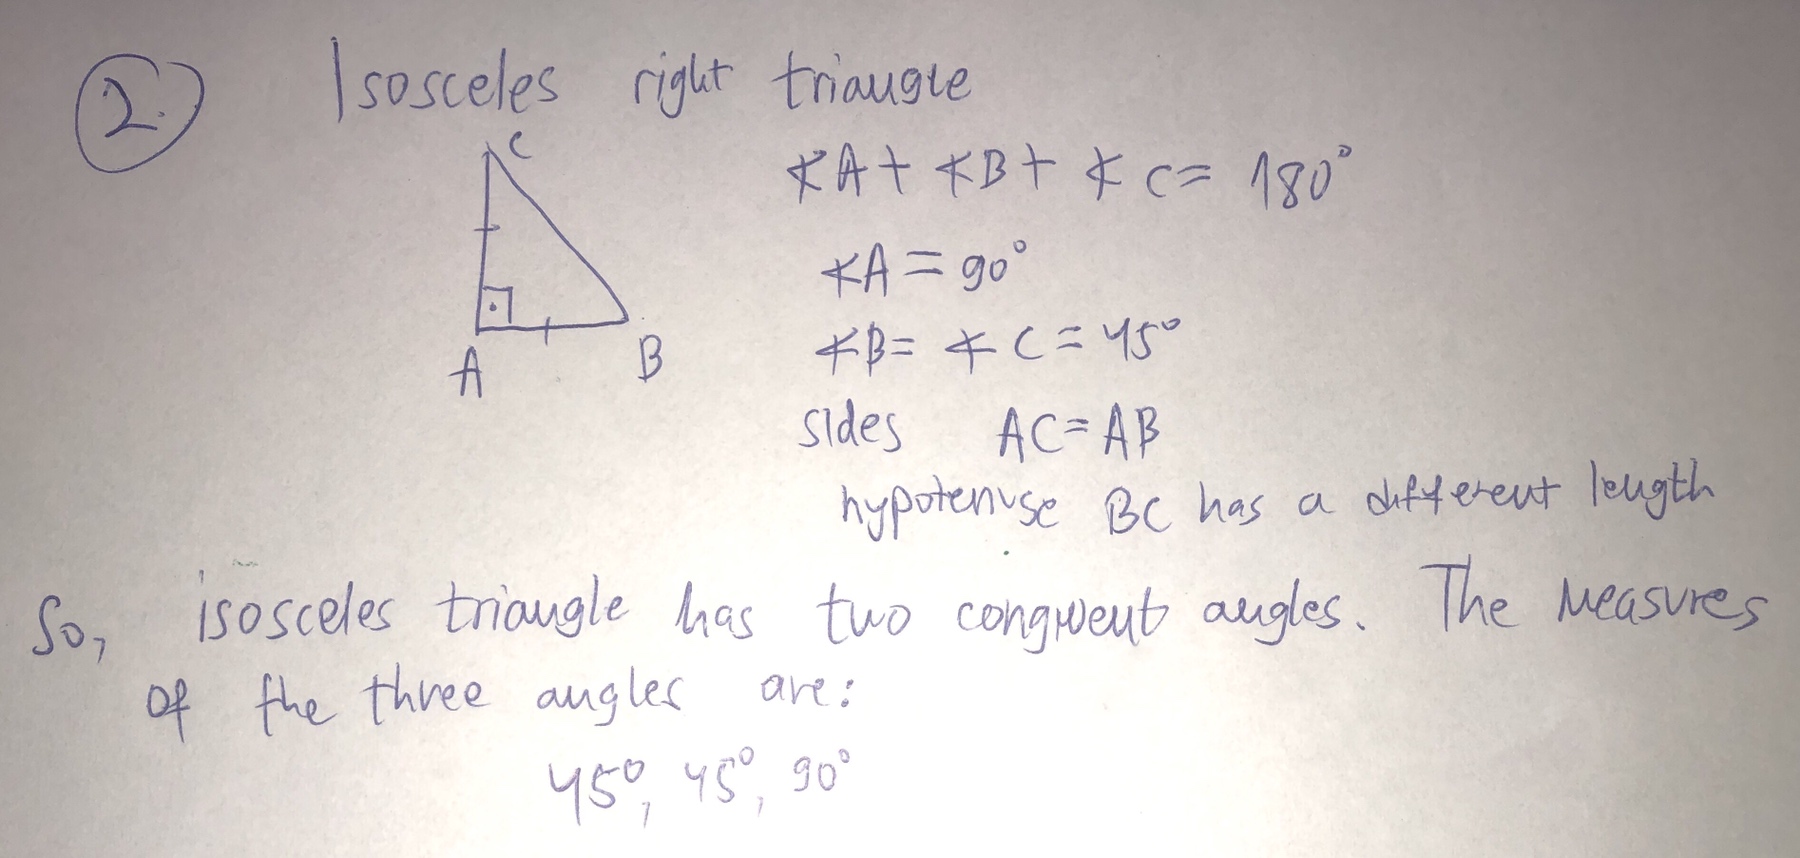 2.
Isosceles right triangle
C
∡A + ∡B + ∡C = 180°
∡A = 90°
∡B = ∡C = 45°
A
B
sides AC = AB
hypotenuse BC has a different length
So, isosceles triangle has two congruent angles. The measures
of the three angles are:
45°, 45°, 90°